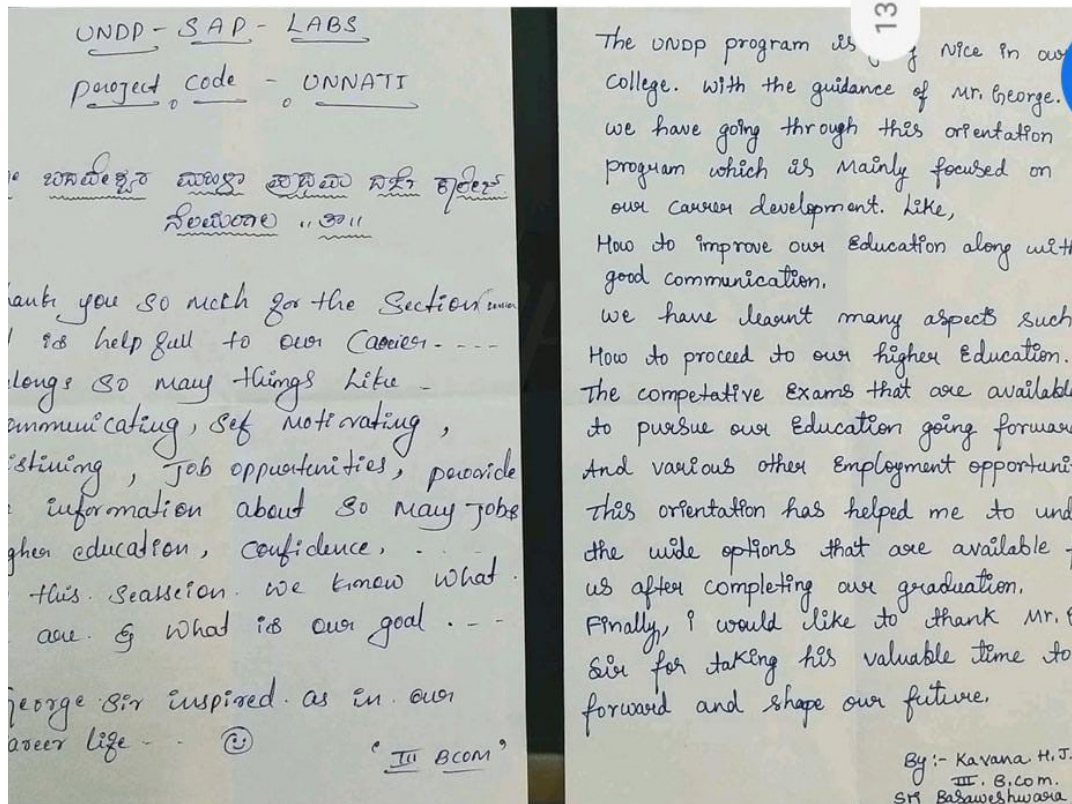 UNDP - SAP - LABS
Project Code - UNNATI
ಬಸವೇಶ್ವರ ಮಹಿಳಾ ಪ್ರಥಮ ದರ್ಜೆ ಕಾಲೇಜ್
ನೆಲಮಂಗಲ "ತಾ"
hank you so mcth for the Section
is help full to our Carrier - - - -
longs so many things Like -
ommunicating, Sef Motivating,
istining, Job oppurtunities, provide
information about so many Jobs
gher education, confidence, . . .
this. Seasseion. we know what .
are. & what is our goal . - - -
George Sir inspired. as in our
areer life - - ☺
"III BCOM"
13
The UNDP program is Nice in our
college. with the guidance of Mr. George.
we have going through this orientation
program which is Mainly focused on
our carrer development. Like,
How to improve our Education along with
good communication.
we have learn't many aspects such
How to proceed to our higher Education.
The competative Exams that are available
to pursue our Education going forward
And various other Employment opportuni
This orientation has helped me to und
the wide options that are available
us after completing our graduation.
Finally, i would like to thank Mr.
Sir for taking his valuable time to
forward and shape our future.
By :- Kavana. H. J.
III. B.com.
Sri Basaweshwara